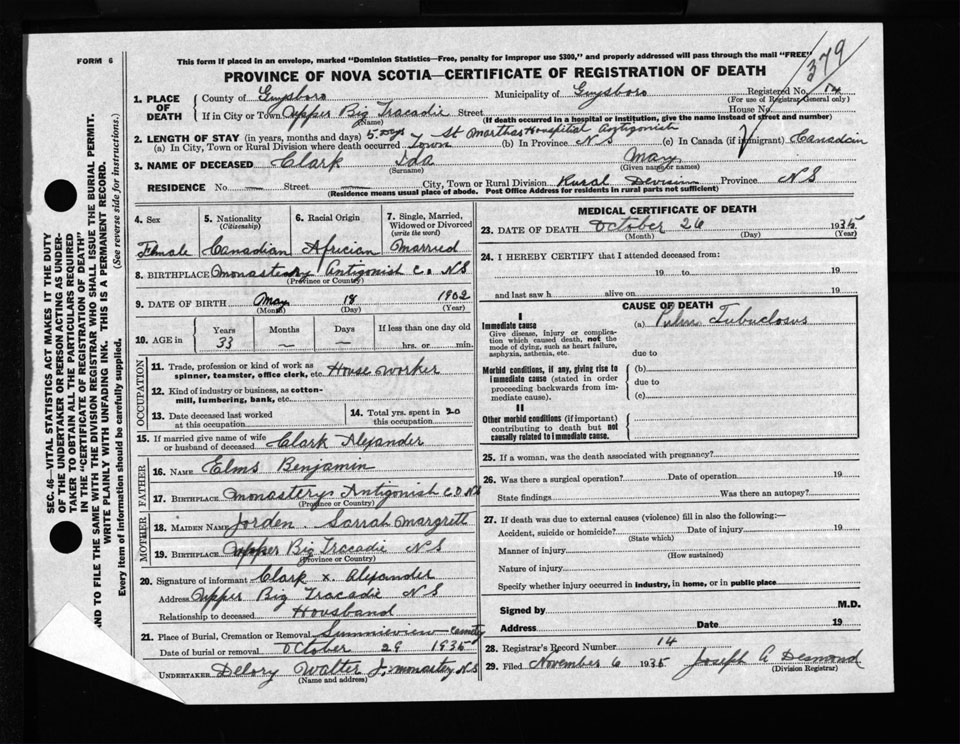 379
FORM 6
This form if placed in an envelope, marked "Dominion Statistics—Free, penalty for improper use $300," and properly addressed will pass through the mail "FREE"
PROVINCE OF NOVA SCOTIA—CERTIFICATE OF REGISTRATION OF DEATH
1. PLACE OF DEATH
County of Guysboro Municipality of Guysboro Registered No. 14
(For use of Registrar General only)
If in City or Town Upper Big Tracadie Street House No.
(Name) (If death occurred in a hospital or institution, give the name instead of street and number)
2. LENGTH OF STAY (in years, months and days) 5 Days St Marthas Hospital Antigonish
(a) In City, Town or Rural Division where death occurred Town (b) In Province NS (c) In Canada (if immigrant) Canadian
3. NAME OF DECEASED Clark Ida May
(Surname) (Given name or names)
RESIDENCE No. — Street — City, Town or Rural Division Rural Devision Province NS
(Residence means usual place of abode. Post Office Address for residents in rural parts not sufficient)
4. Sex Female
5. Nationality (Citizenship) Canadian
6. Racial Origin Africian
7. Single, Married, Widowed or Divorced (write the word) Married
8. BIRTHPLACE Monastery Antigonish Co NS
(Province or Country)
9. DATE OF BIRTH May 18 1902
(Month) (Day) (Year)
10. AGE in Years 33 Months — Days — If less than one day old hrs. or min.
OCCUPATION
11. Trade, profession or kind of work as spinner, teamster, office clerk, etc. House Worker
12. Kind of industry or business, as cotton-mill, lumbering, bank, etc.
13. Date deceased last worked at this occupation
14. Total yrs. spent in this occupation 20
15. If married give name of wife or husband of deceased Clark Alexander
FATHER
16. NAME Elms Benjamin
17. BIRTHPLACE Monasterys Antigonish C.O. NS
(Province or Country)
MOTHER
18. MAIDEN NAME Jorden. Sarrah Margrett
19. BIRTHPLACE Upper Big Tracadie NS
(Province or Country)
20. Signature of informant Clark x. Alexander
Address Upper Big Tracadie NS
Relationship to deceased Housband
21. Place of Burial, Cremation or Removal Sunnieview
Date of burial or removal October 29 1935
UNDERTAKER Delory Walter J, monastery NS
(Name and address)
MEDICAL CERTIFICATE OF DEATH
23. DATE OF DEATH October 26 1935
(Month) (Day) (Year)
24. I HEREBY CERTIFY that I attended deceased from:
19 to 19
and last saw h alive on 19
CAUSE OF DEATH
I
Immediate cause
Give disease, injury or complication which caused death, not the mode of dying, such as heart failure, asphyxia, asthenia, etc.
(a) Pulm Tubuclosus
due to
Morbid conditions, if any, giving rise to immediate cause (stated in order proceeding backwards from immediate cause).
(b)
due to
(c)
II
Other morbid conditions (if important) contributing to death but not causally related to immediate cause.
25. If a woman, was the death associated with pregnancy?
26. Was there a surgical operation? Date of operation 19
State findings Was there an autopsy?
27. If death was due to external causes (violence) fill in also the following:—
Accident, suicide or homicide? Date of injury 19
(State which)
Manner of injury
(How sustained)
Nature of injury
Specify whether injury occurred in industry, in home, or in public place
Signed by M.D.
Address Date 19
28. Registrar's Record Number 14
29. Filed November 6 1935 Joseph A Desmond
(Division Registrar)
SEC. 46—VITAL STATISTICS ACT MAKES IT THE DUTY
OF THE UNDERTAKER OR PERSON ACTING AS UNDER-
TAKER TO OBTAIN ALL THE PARTICULARS REQUIRED
IN THE "CERTIFICATE OF REGISTRATION OF DEATH"
AND TO FILE THE SAME WITH THE DIVISION REGISTRAR WHO SHALL ISSUE THE BURIAL PERMIT.
WRITE PLAINLY WITH UNFADING INK. THIS IS A PERMANENT RECORD.
Every item of information should be carefully supplied. (See reverse side for instructions.)